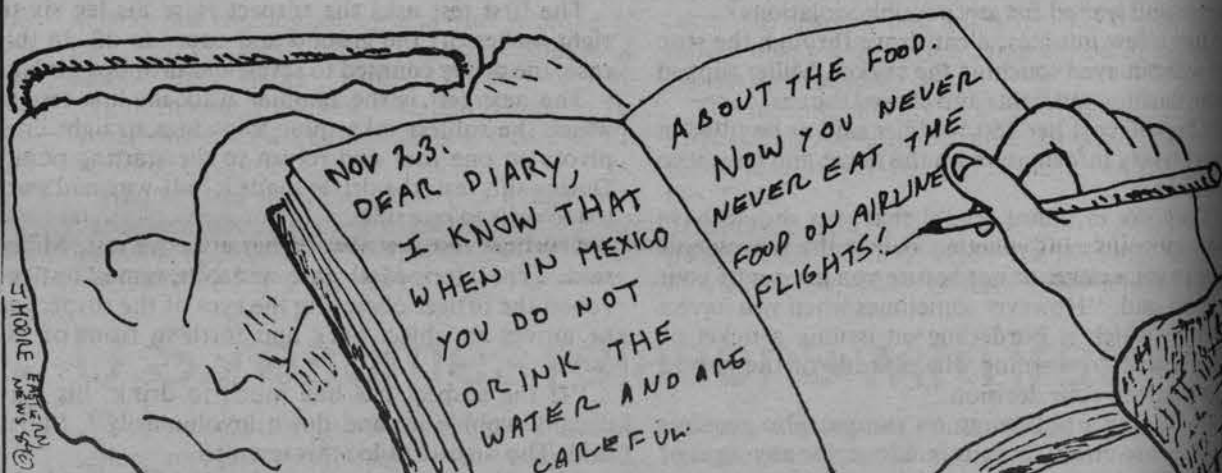 NOV 23.
DEAR DIARY,
I KNOW THAT
WHEN IN MEXICO
YOU DO NOT
DRINK THE
WATER AND ARE
CAREFUL
ABOUT THE FOOD.
NOW YOU NEVER
NEVER EAT THE
FOOD ON AIRLINE
FLIGHTS!
EASTERN
NEWS